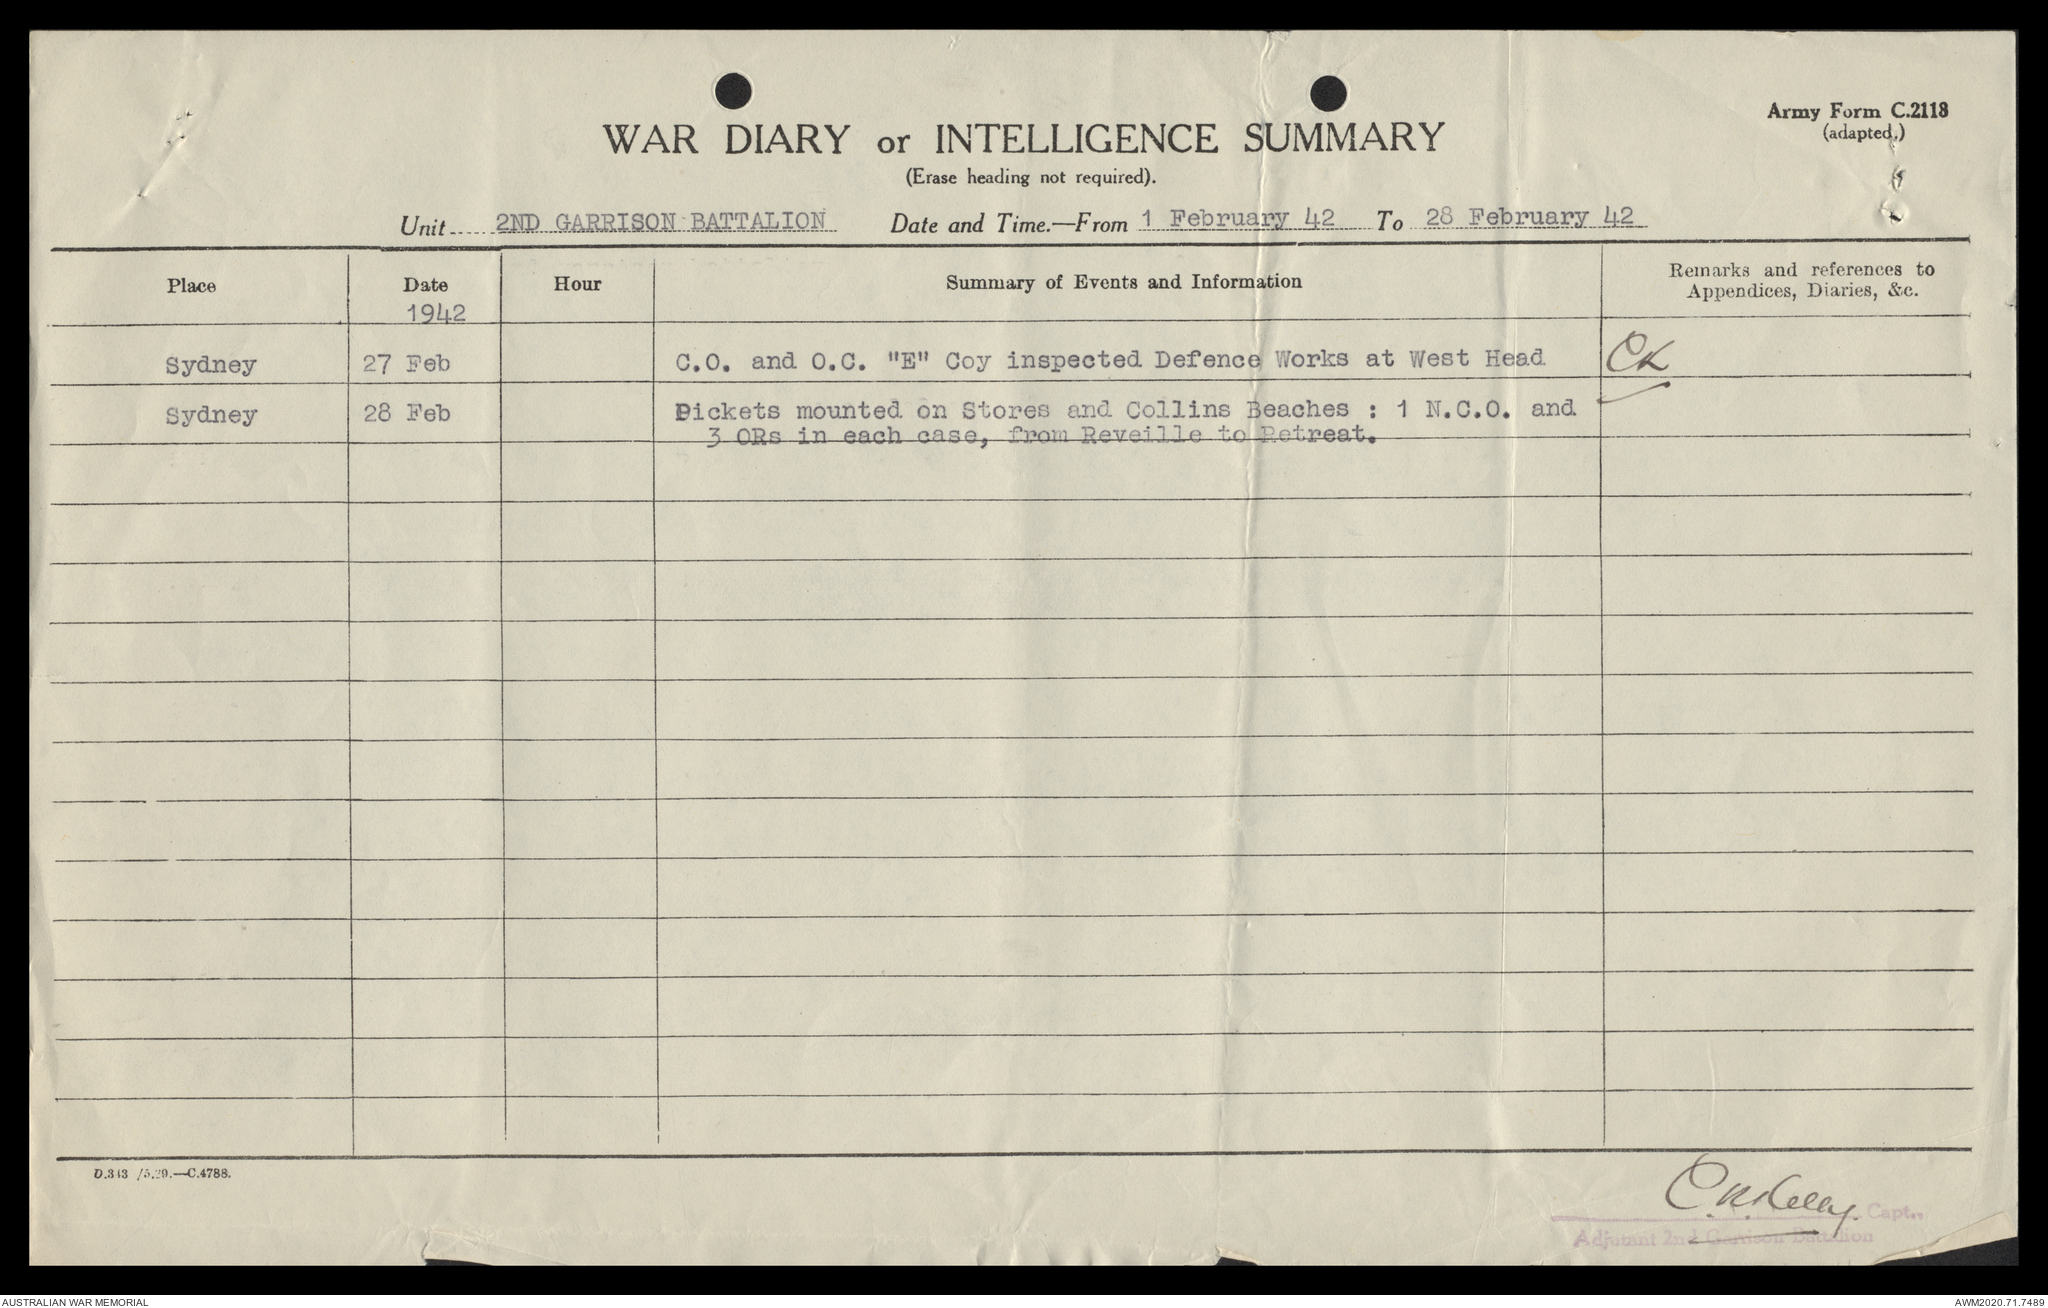 Army Form C.2118
(adapted.)
WAR DIARY or INTELLIGENCE SUMMARY
(Erase heading not required).
Unit 2ND GARRISON BATTALION Date and Time.—From 1 February 42 To 28 February 42
Place Date Hour Summary of Events and Information Remarks and references to
Appendices, Diaries, &c.
1942
Sydney 27 Feb C.O. and O.C. "E" Coy inspected Defence Works at West Head CK
Sydney 28 Feb Pickets mounted on Stores and Collins Beaches : 1 N.C.O. and
3 ORs in each case, from Reveille to Retreat.
D.343 /5.39.—C.4788.
Capt.,
Adjutant 2nd Garrison Battalion
AUSTRALIAN WAR MEMORIAL AWM2020.71.7489